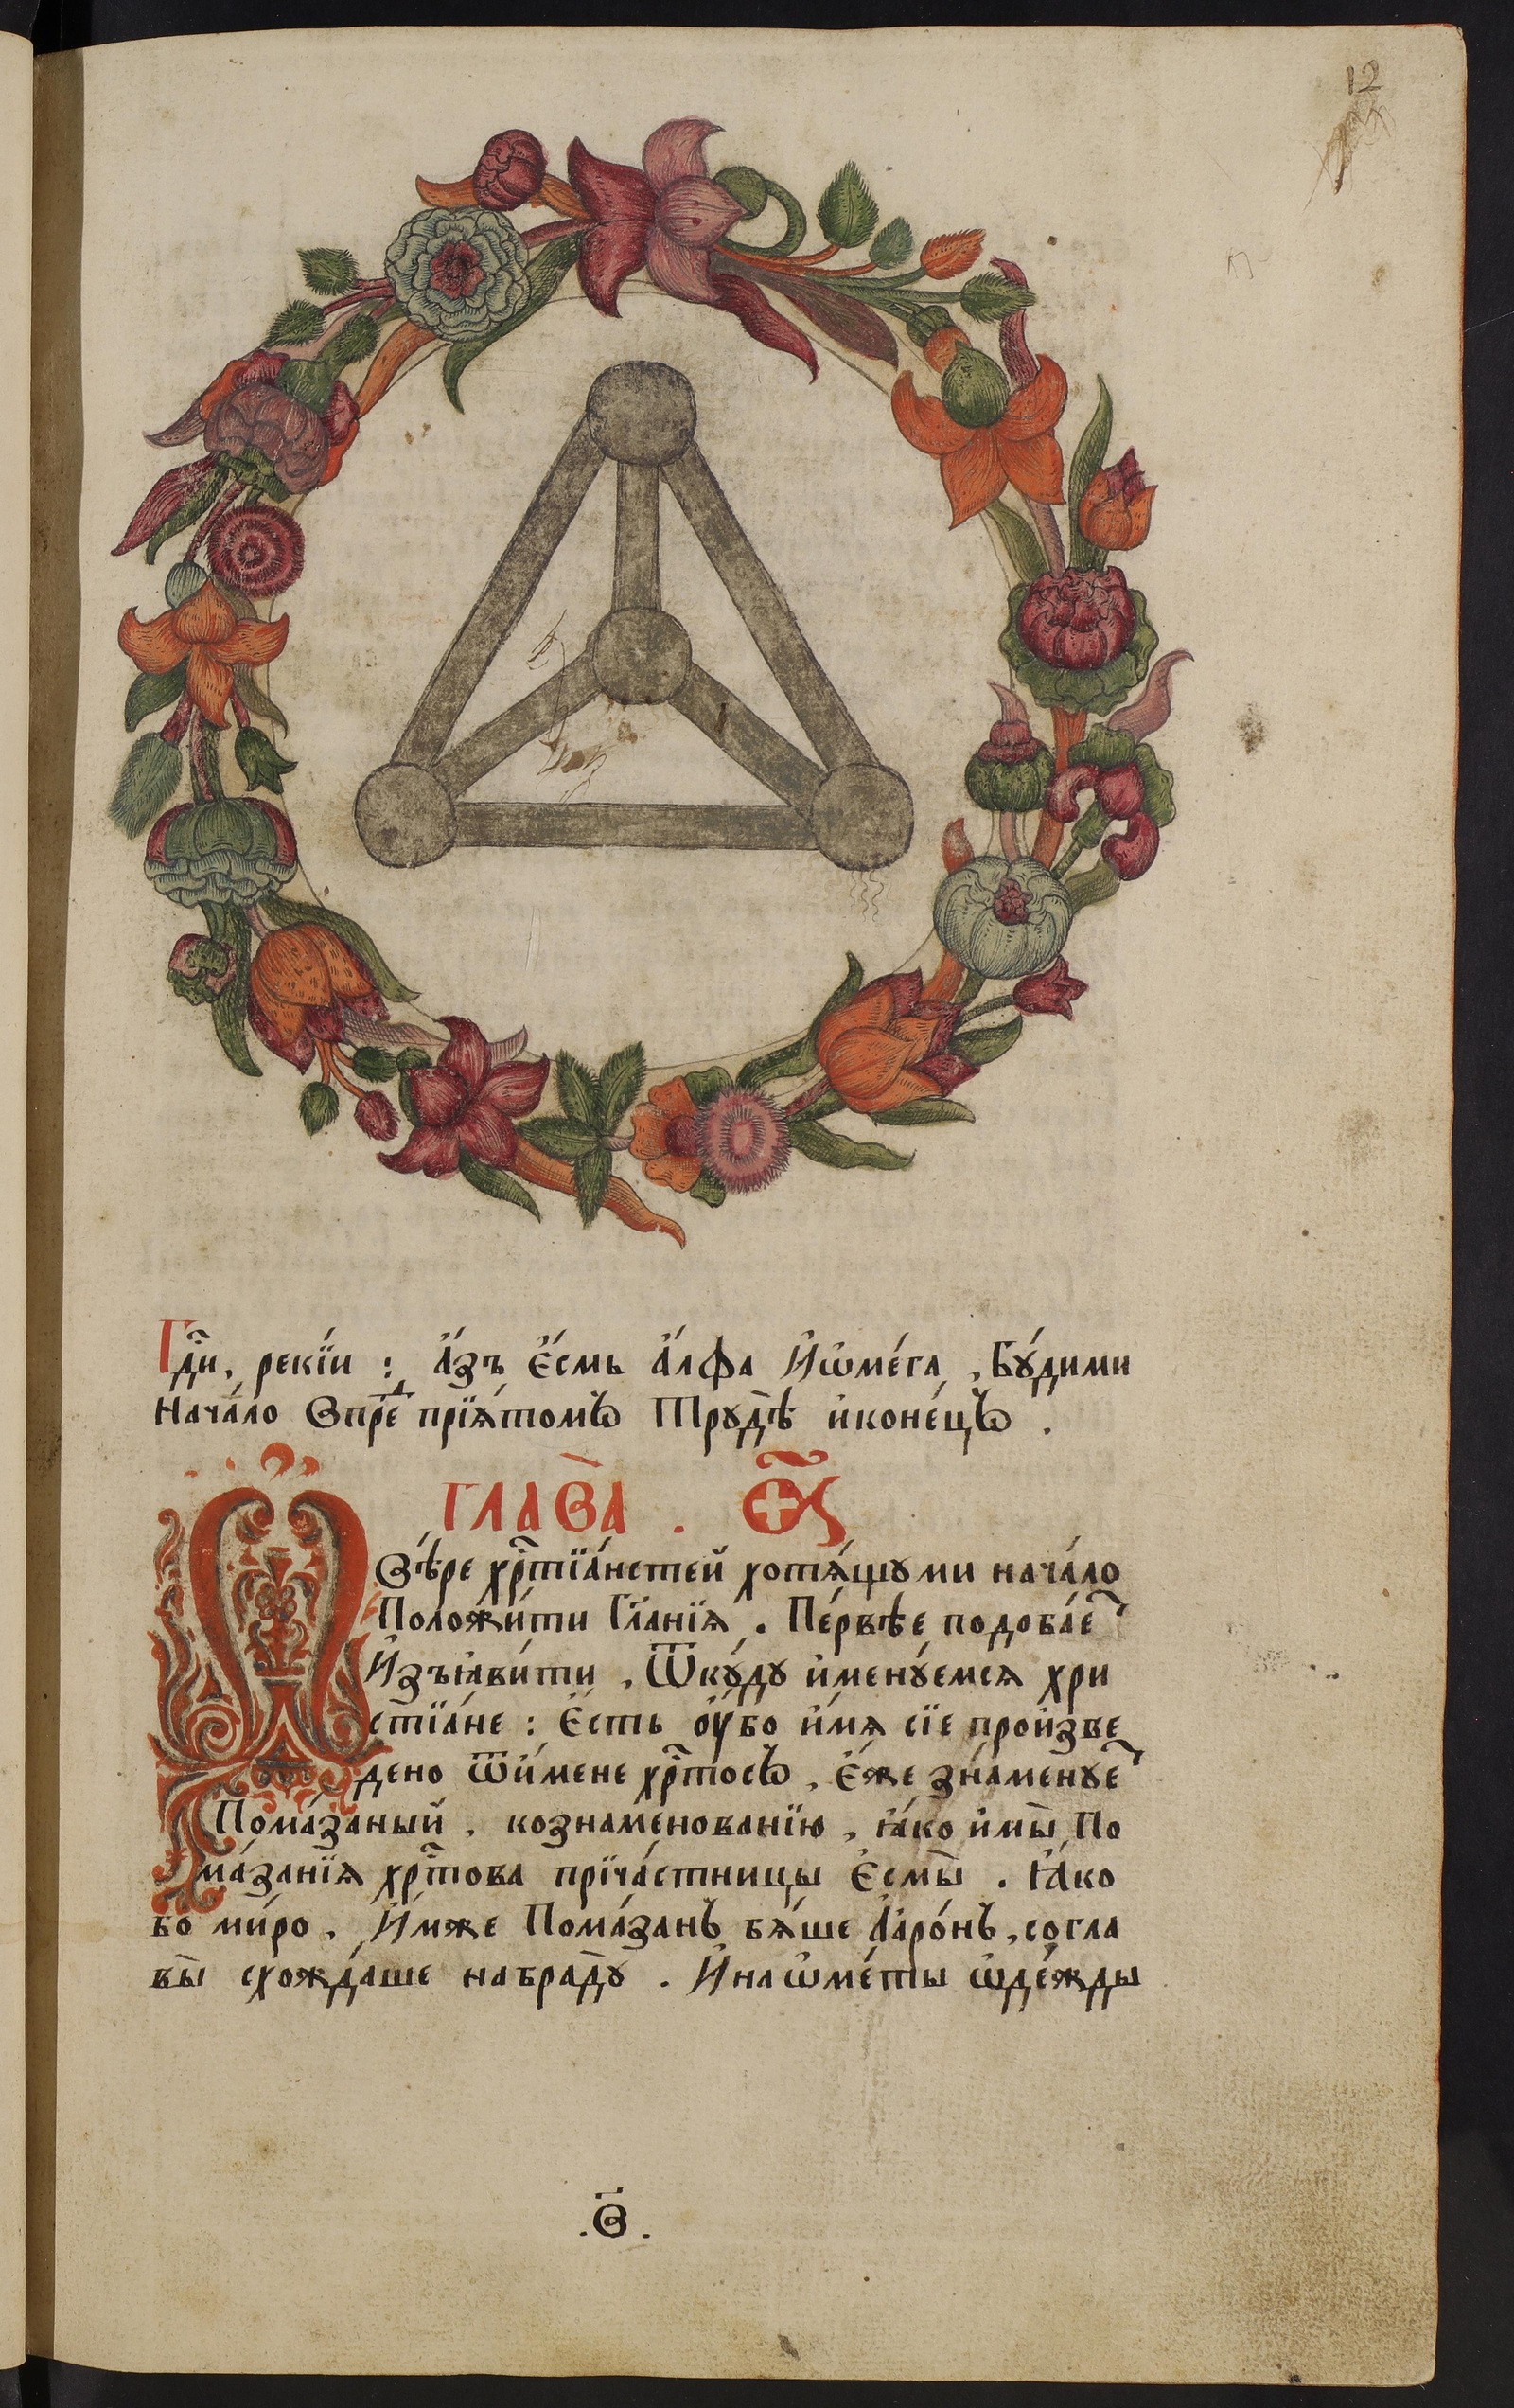 12
Гдⷭ҇и, рекі́и : А́зъ Є҆́смь А́лфа Иѡме́га, Бꙋ́дими
Нача́ло Впреⷣ прїѧ́томъ Трꙋдѣ̀ и҆коне́цъ .
ГЛАВА̀ . а҃
Ѡ Вѣ́ре хрⷭ҇тїа́нстей хотѧ́щꙋми нача́ло
Положи́ти Гланїѧ . Пе́рвѣе подоба́еⷮ
И҆зъꙗви́ти , Ѿкꙋ́дꙋ и҆менꙋ́емсѧ хри
стїа́не : Є҆́сть ᲂу҆́бо и҆́мѧ сїе произве
дено̀ ѿи́мене хрⷭ҇то́съ , Є҆́же зна́менꙋеⷮ
Пома́заный , кознаменованїю , ꙗ҆́ко и҆мы̀ По
ма́занїѧ хрⷭ҇това прїча́стницы Є҆смы̀ . Ꙗ҆́ко
бо ми́ро , И҆́мже Пома́занъ бѧ́ше Ааро́нъ , согла
вы̀ схожда́ше набрадꙋ̀ . И҆наѡме́ты ѡ҆де́жды
. в҃ .